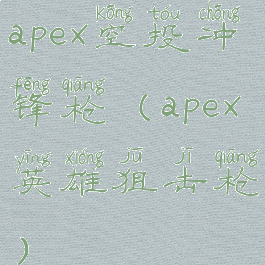 kōng tóu chōng
apex空投冲
fēng qiāng
锋枪(apex
yīng xióng jū jī qiāng
英雄狙击枪
)